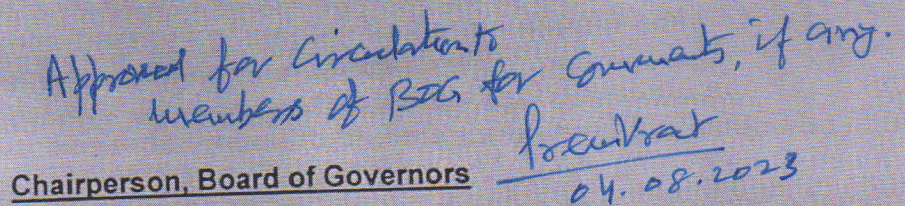 Approved for Circulation to
members of BOG for comments, if any.
Premvrat
Chairperson, Board of Governors
04.08.2023